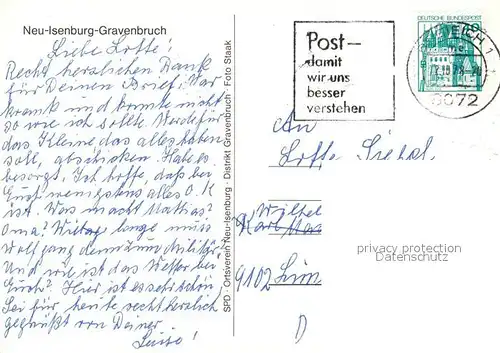 Neu-Isenburg-Gravenbruch
Liebe Lotte!
Recht herzlichen Dank
für Deinen Brief. War
krank und konnte nicht
so wie ich sollte. Werde für
das Kleine das alles haben
soll, abschicken. Habe es
besorgt. Ich hoffe, daß bei
Euch wenigstens alles O.K
ist. Was macht Mathias?
Oma? Wie lange muß
Wolfgang denn zum Militär.
Und wie ist das Wetter bei
Euch? Hier ist es sehr schön.
Sei für heute recht herzlich
gegrüßt von Deiner
Luise!
SPD · Ortsverein Neu-Isenburg · Distrikt Gravenbruch · Foto Staak
Post–
damit
wir uns
besser
verstehen
DEUTSCHE BUNDESPOST
DREIEICH 1
6072
An
Lotte
Wilhel
Karl
9102
D
privacy protection
Datenschutz